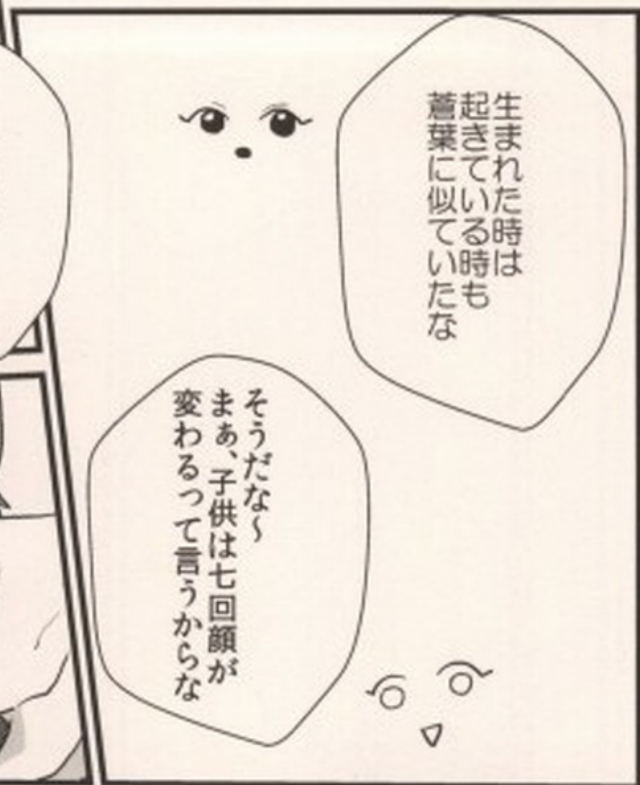 生まれた時は
起きている時も
蒼葉に似ていたな
そうだな～
まぁ、子供は七回顔が
変わるって言うからな